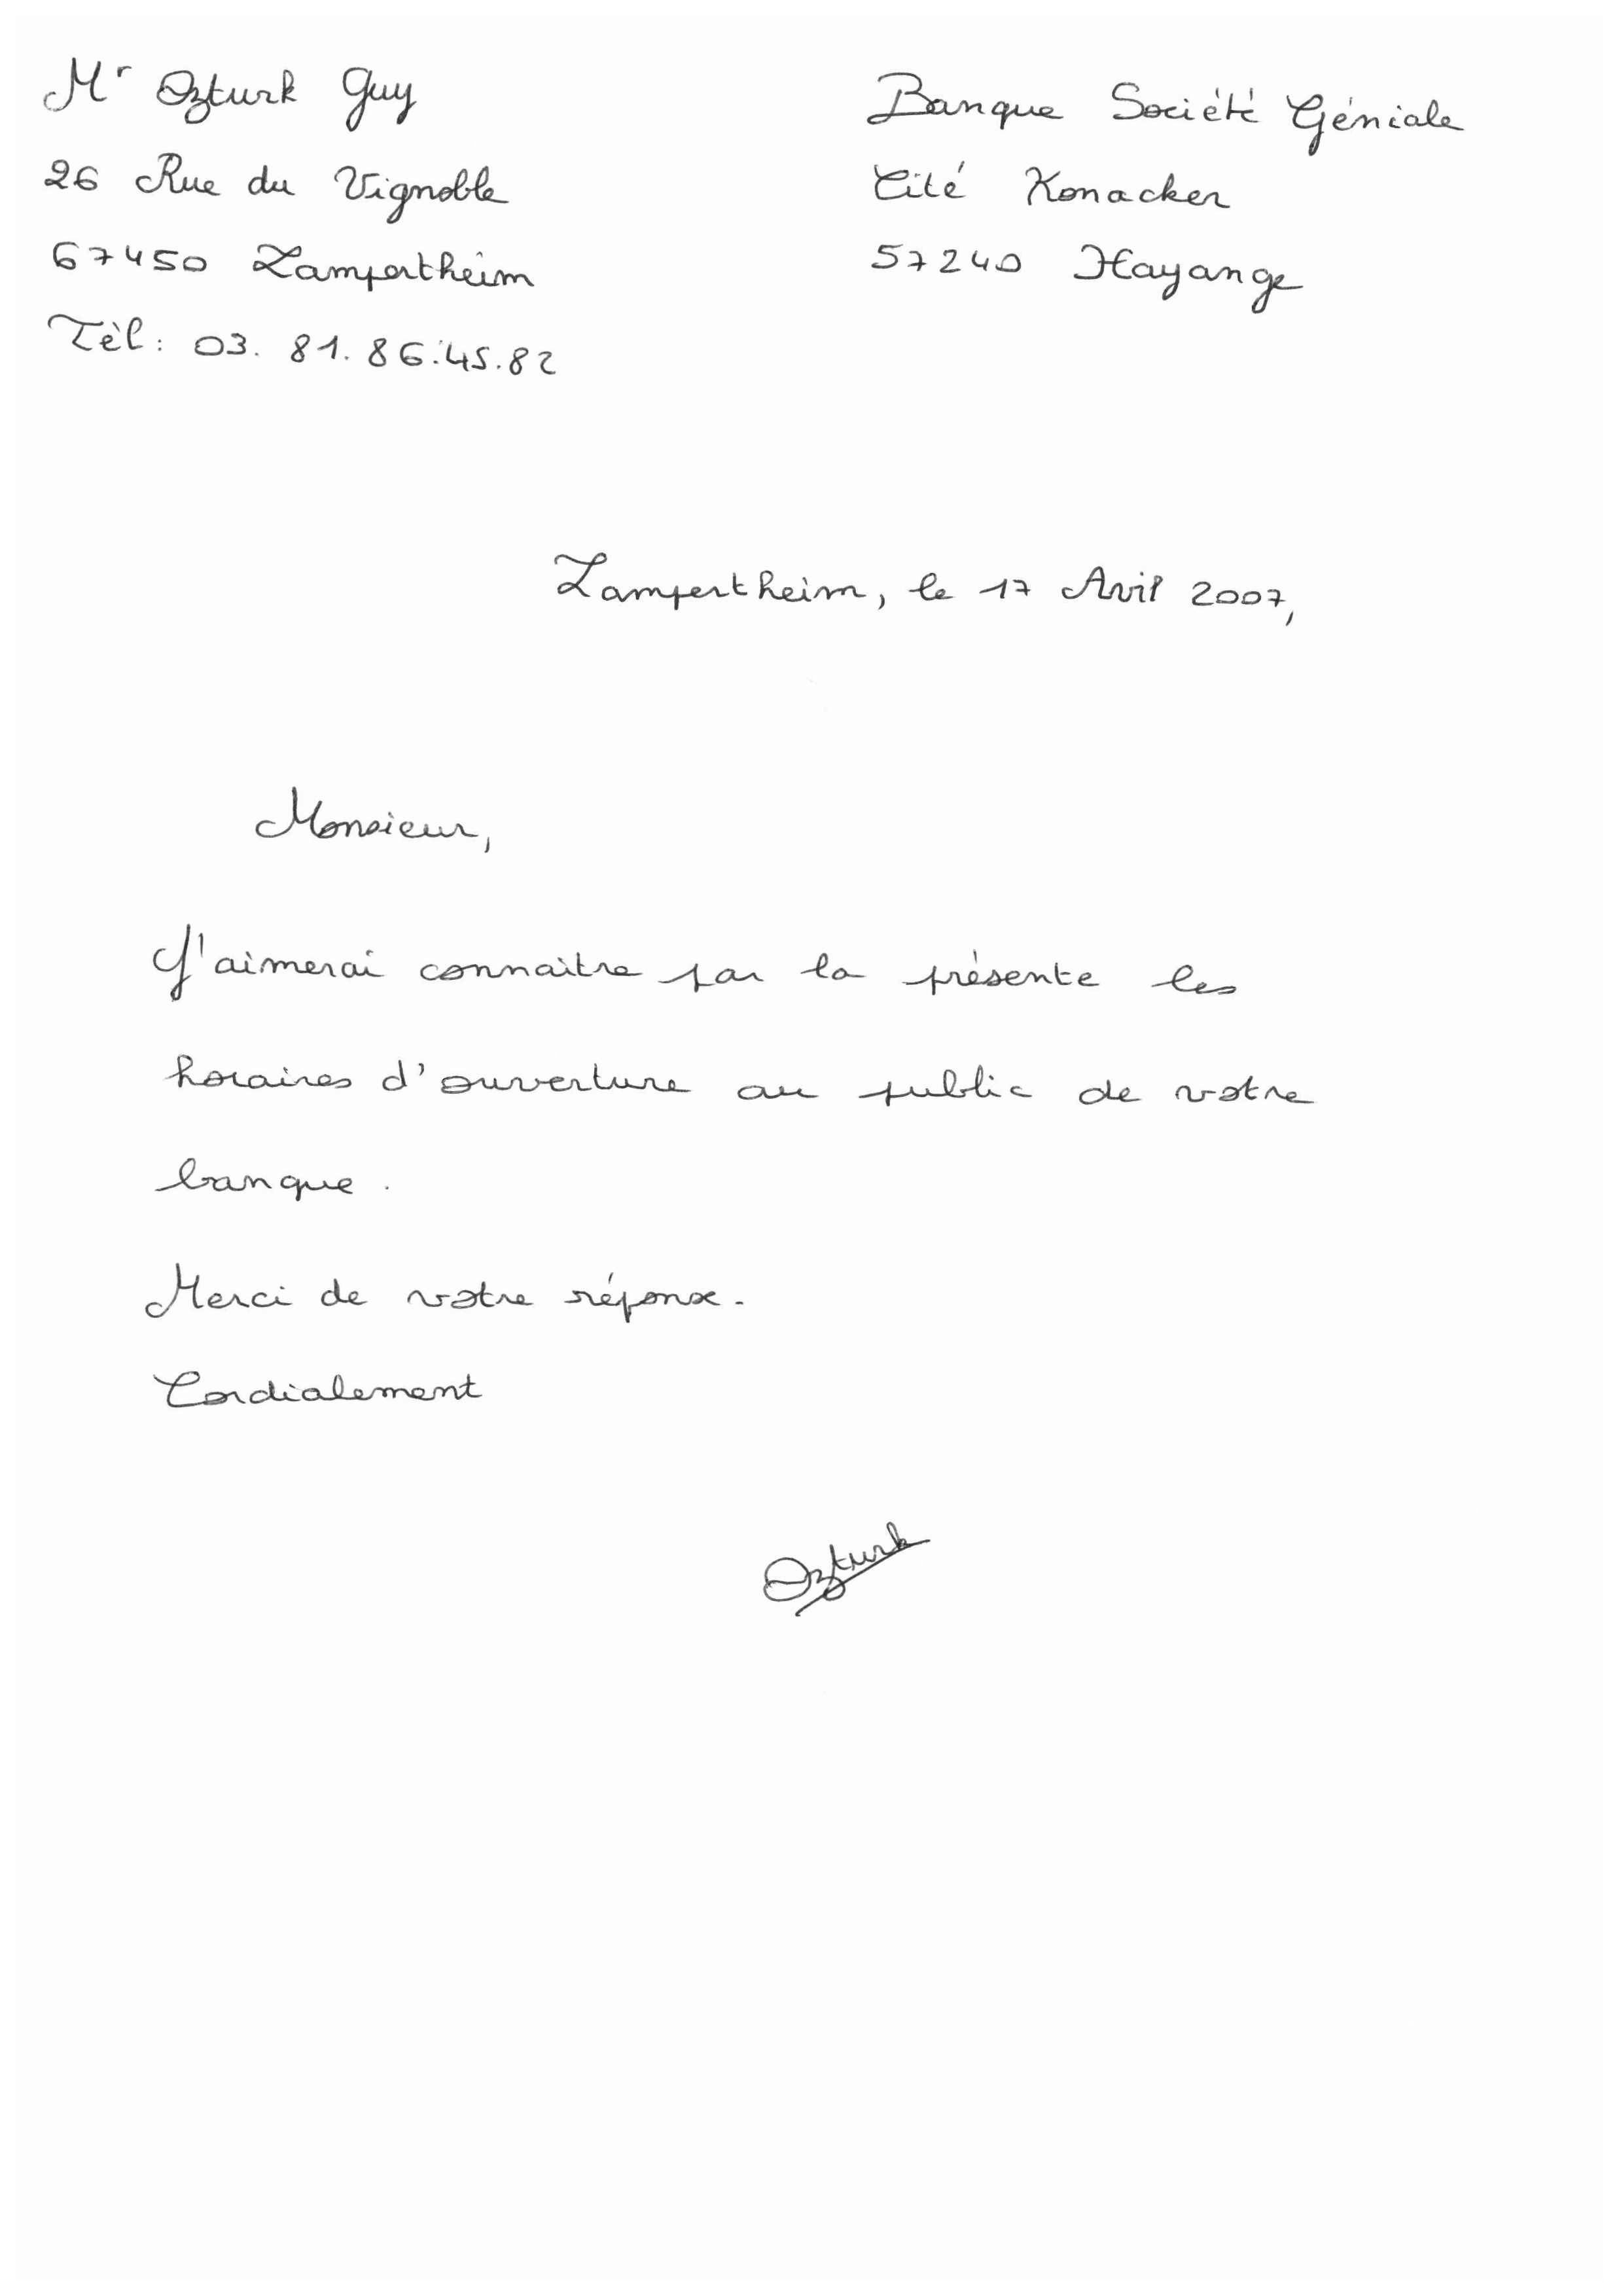 Mr Ozturk Guy
26 Rue du Vignoble
67450 Lampertheim
Tèl: 03. 81. 86.45.82
Banque Société Géniale
Cité Konacker
57240 Hayange
Lampertheim, le 17 Avril 2007,
Monsieur,
J'aimerai connaître par la présente les
horaires d'ouverture au public de votre
banque.
Merci de votre réponse.
Cordialement
Ozturk